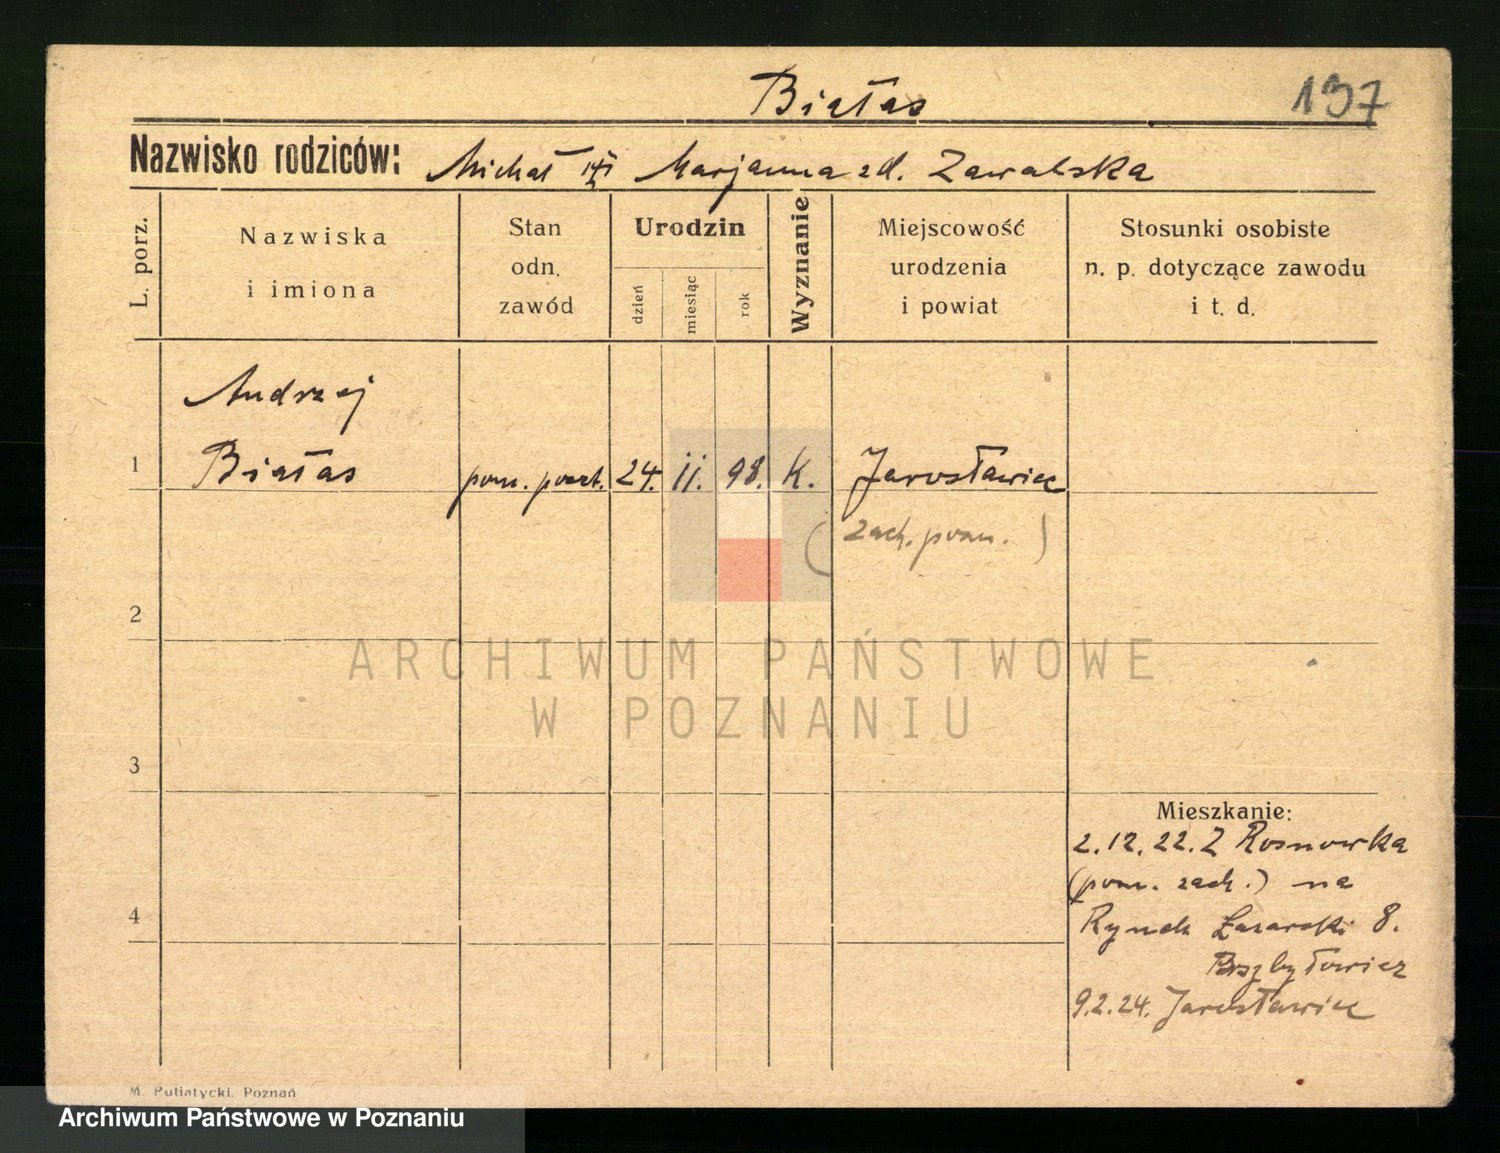 Białas
137
Nazwisko rodziców: Michał i Marjanna zd. Zawalska
L. porz.
Nazwiska
i imiona
Stan
odn.
zawód
Urodzin
dzień
miesiąc
rok
Wyznanie
Miejscowość
urodzenia
i powiat
Stosunki osobiste
n. p. dotyczące zawodu
i t. d.
Andrzej
1 Białas pom. poczt. 24. 11. 98. K. Jarosławiec
(zach. pozn.)
2
3
Mieszkanie:
2.12.22. Z Rosnowka
(pozn. zach.) na
4
Rynek Łazarski 8.
Przybyłowicz
9.2.24. Jarosławiec
M. Putiatycki. Poznań
ARCHIWUM PAŃSTWOWE
W POZNANIU
Archiwum Państwowe w Poznaniu